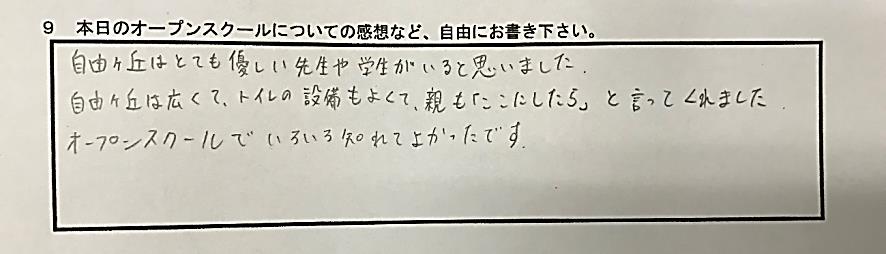 9 本日のオープンスクールについての感想など、自由にお書き下さい。
自由ヶ丘はとても優しい先生や学生がいると思いました.
自由ヶ丘は広くて、トイレの設備もよくて、親も「ここにしたら」と言ってくれました.
オープンスクールでいろいろ知れてよかったです.